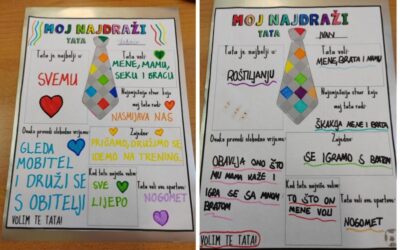 MOJ NAJDRAŽI
TATA
Tata je najbolji u:
SVEMU
Tata voli:
MENE, MAMU,
SEKU I BRACU
Najsmješnija stvar koju
moj tata radi:
NASMIJAVA NAS
Ovako provodi slobodno vrijeme:
GLEDA
MOBITEL
I DRUŽI SE
S OBITELJI
Zajedno:
PRIČAMO, DRUŽIMO SE,
IDEMO NA TRENING.
Kad tata najviše voli:
SVE
LIJEPO
Tata voli ovaj sport:
NOGOMET
VOLIM TE TATA!
MOJ NAJDRAŽI
TATA
IVAN
Tata je najbolji u:
ROŠTILJANJU
Tata voli:
MENE, BRATA I MAMU
Najsmješnija stvar koju
moj tata radi:
ŠKAKLJA MENE I BRATA
Ovako provodi slobodno vrijeme:
OBAVLJA ONO ŠTO
MU MAMA KAŽE I
IGRA SE SA MNOM I
BRATOM
Zajedno:
SE IGRAMO S BRATOM
Kad tata najviše voli:
TO ŠTO ON
MENE VOLI
NOGOMET
VOLIM TE TATA!